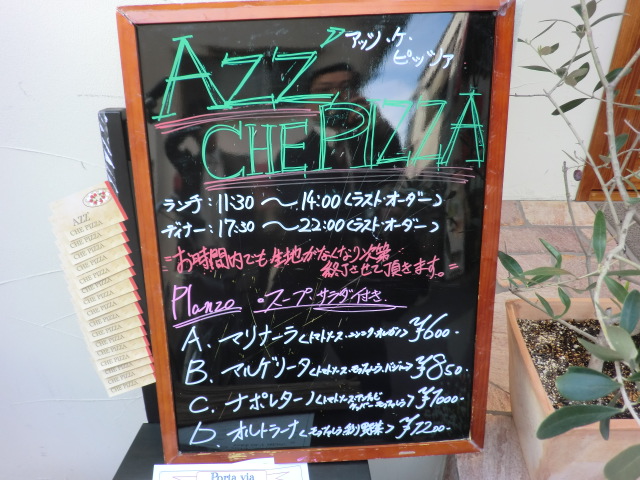 AZZ
アッツ・ケ・
ピッツァ
CHE PIZZA
ランチ：11:30 〜 14:00（ラスト・オーダー）
ディナー：17:30 〜 22:00（ラスト・オーダー）
お時間内でも生地がなくなり次第
終了させて頂きます。
Planzo ・スープ サラダ付き
A. マリナーラ（トマトソース・ニンニク・オレガノ）¥600.
B. マルゲリータ（トマトソース・モッツァレラ・バジル）¥850.
C. ナポレターノ（トマトソース・アンチョビ
ケッパー・モッツァレラ）¥1000.
D. オルトラーナ（モッツァレラ 彩り野菜）¥1200.
AZZ
CHE PIZZA
CHE PIZZA
CHE PIZZA
CHE PIZZA
CHE PIZZA
CHE PIZZA
CHE PIZZA
CHE PIZZA
CHE PIZZA
CHE PIZZA
Porta via